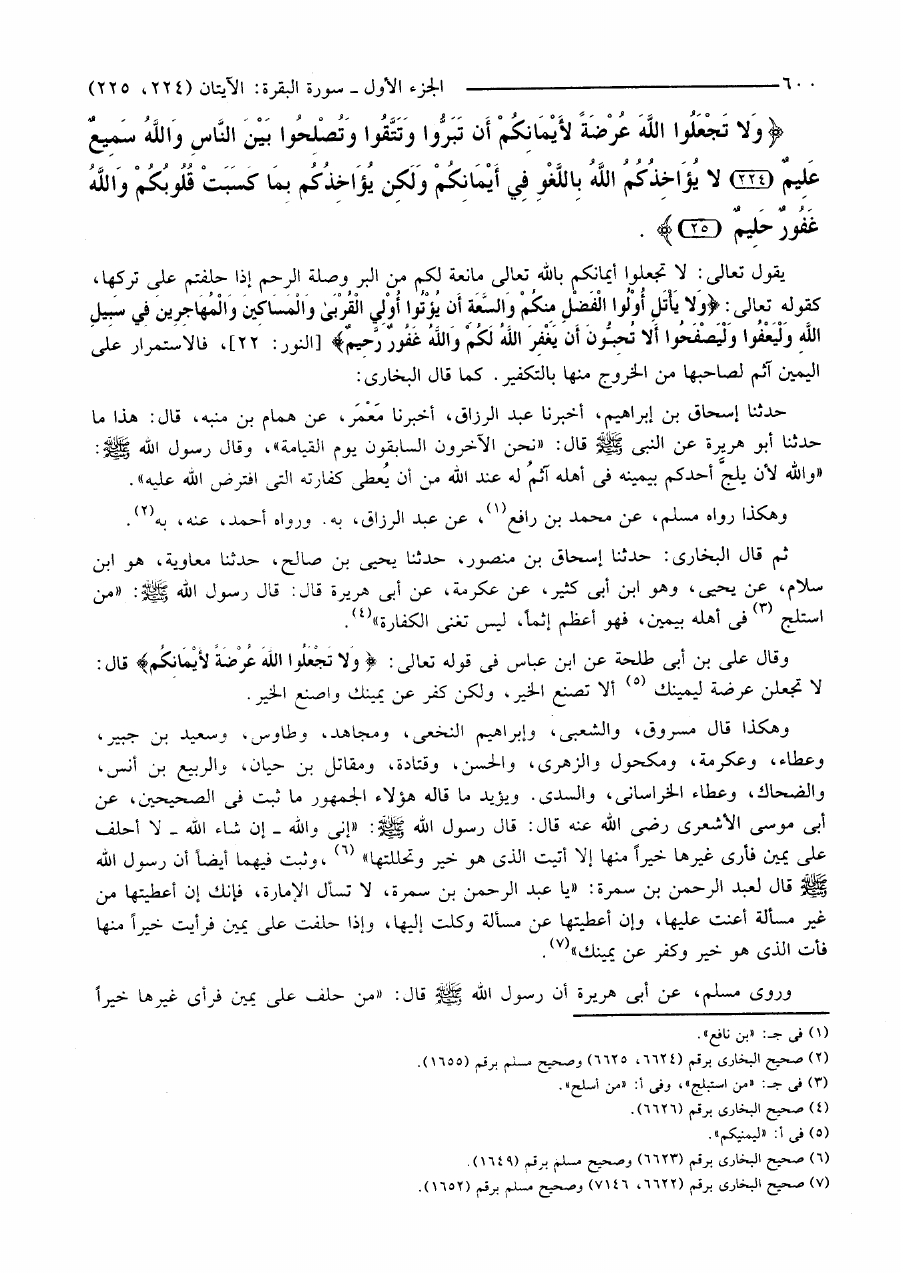 ٦٠٠ ــــــــــ الجزء الأول ـ سورة البقرة: الآيتان (٢٢٤، ٢٢٥)
﴿وَلا تَجْعَلُوا اللَّهَ عُرْضَةً لأَيْمَانِكُمْ أَن تَبَرُّوا وَتَتَّقُوا وَتُصْلِحُوا بَيْنَ النَّاسِ وَاللَّهُ سَمِيعٌ
عَلِيمٌ (٢٢٤) لا يُؤَاخِذُكُمُ اللَّهُ بِاللَّغْوِ فِي أَيْمَانِكُمْ وَلَكِن يُؤَاخِذُكُم بِمَا كَسَبَتْ قُلُوبُكُمْ وَاللَّهُ
غَفُورٌ حَلِيمٌ (٢٥)﴾ .
يقول تعالى: لا تجعلوا أيمانكم بالله تعالى مانعة لكم من البر وصلة الرحم إذا حلفتم على تركها،
كقوله تعالى: ﴿وَلا يَأْتَلِ أُوْلُوا الْفَضْلِ مِنكُمْ وَالسَّعَةِ أَن يُؤْتُوا أُوْلِي الْقُرْبَىٰ وَالْمَسَاكِينَ وَالْمُهَاجِرِينَ فِي سَبِيلِ
اللَّهِ وَلْيَعْفُوا وَلْيَصْفَحُوا أَلا تُحِبُّونَ أَن يَغْفِرَ اللَّهُ لَكُمْ وَاللَّهُ غَفُورٌ رَّحِيمٌ﴾ [النور: ٢٢]، فالاستمرار على
اليمين آثم لصاحبها من الخروج منها بالتكفير. كما قال البخارى:
حدثنا إسحاق بن إبراهيم، أخبرنا عبد الرزاق، أخبرنا مَعْمَر، عن همام بن منبه، قال: هذا ما
حدثنا أبو هريرة عن النبى ﷺ قال: «نحن الآخرون السابقون يوم القيامة»، وقال رسول الله ﷺ:
«والله لأن يلجَّ أحدكم بيمينه فى أهله آثمُ له عند الله من أن يُعطى كفارته التى افترض الله عليه».
وهكذا رواه مسلم، عن محمد بن رافع(١)، عن عبد الرزاق، به. ورواه أحمد، عنه، به(٢).
ثم قال البخارى: حدثنا إسحاق بن منصور، حدثنا يحيى بن صالح، حدثنا معاوية، هو ابن
سلام، عن يحيى، وهو ابن أبى كثير، عن عكرمة، عن أبى هريرة قال: قال رسول الله ﷺ: «من
استلج (٣) فى أهله بيمين، فهو أعظم إثماً، ليس تغنى الكفارة»(٤).
وقال على بن أبى طلحة عن ابن عباس فى قوله تعالى: ﴿ وَلا تَجْعَلُوا اللَّهَ عُرْضَةً لأَيْمَانِكُم﴾ قال:
لا تجعلن عرضة ليمينك (٥) ألا تصنع الخير، ولكن كفر عن يمينك واصنع الخير.
وهكذا قال مسروق، والشعبى، وإبراهيم النخعى، ومجاهد، وطاوس، وسعيد بن جبير،
وعطاء، وعكرمة، ومكحول والزهرى، والحسن، وقتادة، ومقاتل بن حيان، والربيع بن أنس،
والضحاك، وعطاء الخراسانى، والسدى. ويؤيد ما قاله هؤلاء الجمهور ما ثبت فى الصحيحين، عن
أبى موسى الأشعرى رضى الله عنه قال: قال رسول الله ﷺ: «إنى والله ـ إن شاء الله ـ لا أحلف
على يمين فأرى غيرها خيراً منها إلا أتيت الذى هو خير وتحللتها» (٦) ،وثبت فيهما أيضاً أن رسول الله
ﷺ قال لعبد الرحمن بن سمرة: «يا عبد الرحمن بن سمرة، لا تسأل الإمارة، فإنك إن أعطيتها من
غير مسألة أعنت عليها، وإن أعطيتها عن مسألة وكلت إليها، وإذا حلفت على يمين فرأيت خيراً منها
فأت الذى هو خير وكفر عن يمينك»(٧).
وروى مسلم، عن أبى هريرة أن رسول الله ﷺ قال: «من حلف على يمين فرأى غيرها خيراً
(١) فى جـ: «بن نافع».
(٢) صحيح البخارى برقم (٦٦٢٤، ٦٦٢٥) وصحيح مسلم برقم (١٦٥٥).
(٣) فى جـ: «من استبلج»، وفى أ: «من أسلح».
(٤) صحيح البخارى برقم (٦٦٢٦).
(٥) فى أ: «ليمنيكم».
(٦) صحيح البخارى برقم (٦٦٢٣) وصحيح مسلم برقم (١٦٤٩).
(٧) صحيح البخارى برقم (٦٦٢٢، ٧١٤٦) وصحيح مسلم برقم (١٦٥٢).